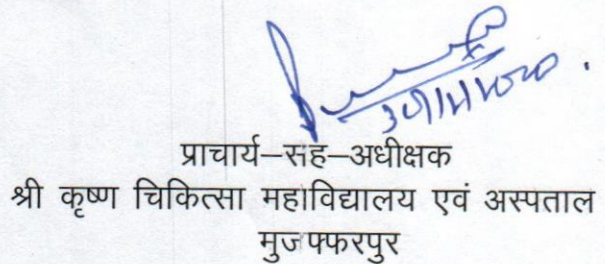 प्राचार्य–सह–अधीक्षक
श्री कृष्ण चिकित्सा महाविद्यालय एवं अस्पताल
मुजफ्फरपुर